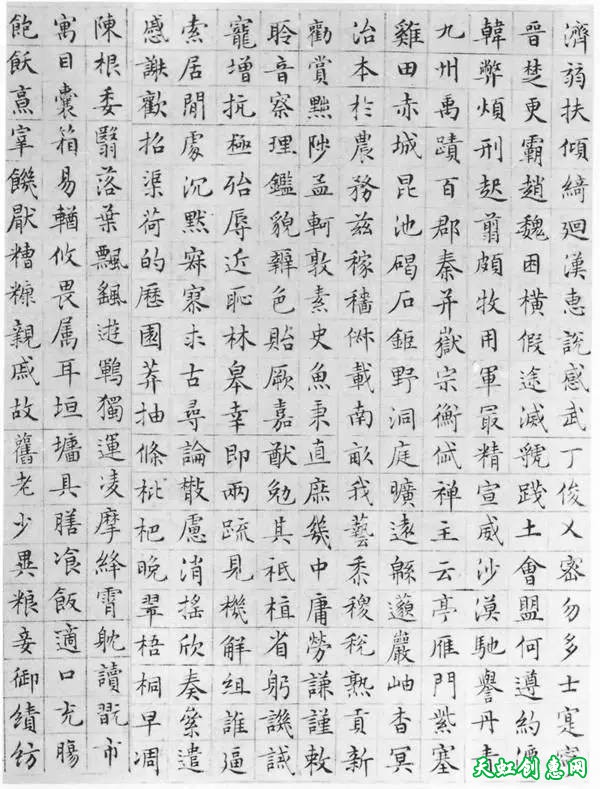 濟弱扶傾綺迴漢惠說感武丁俊乂密勿多士寔寧
晉楚更霸趙魏困橫假途滅虢踐土會盟何遵約
韓弊煩刑起翦頗牧用軍冣精宣威沙漠馳譽丹青
九州禹蹟百郡秦并嶽宗衡岱禪主云亭雁門紫塞
雞田赤城昆池碣石鉅野洞庭曠遠緜邈巖岫杳冥
治本於農務茲稼穡俶載南畝我藝黍稷稅熟貢新
勸賞黜陟孟軻敦素史魚秉直庶幾中庸勞謙謹敕
聆音察理鑑貌辨色貽厥嘉猷勉其祗植省躬譏誡
寵增抗極殆辱近恥林皋幸即兩疏見機解組誰逼
索居閒處沉默寂寥求古尋論散慮消搖欣奏纍遣
慼謝歡招渠荷的歷園莽抽條枇杷晚翠梧桐早凋
陳根委翳落葉飄颻遊鵾獨運凌摩絳霄耽讀翫市
寓目囊箱易輶攸畏属耳垣墻具膳飡飯適口充腸
飽飫烹宰饑厭糟糠親戚故舊老少異糧妾御績紡
天虹创惠网